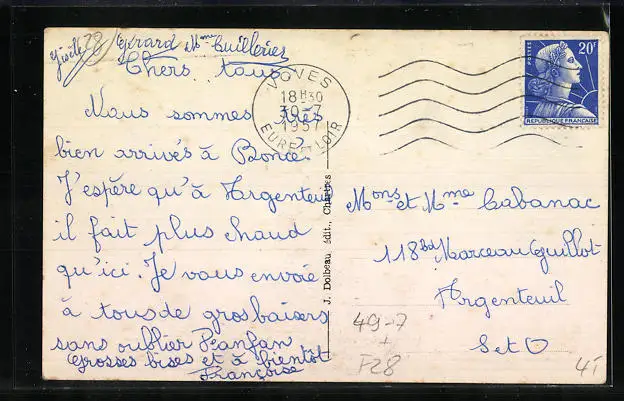 Gisèle Gérard Mme Cuilleries
Chers tous
Nous sommes très
bien arrivés à Bonce.
J'espère qu'à Argenteuil
il fait plus chaud
qu'ici. Je vous envoie
à tous de gros baisers
sans oublier Peanfan
Grosses bises et à bientôt
Françoise
VOVES
18H30
30-7
1957
EURE-ET-LOIR
J. Dolbeau édit., Chartres
POSTES
20F
REPUBLIQUE FRANÇAISE
Mons et Mme Cabanac
118 Bd Marceau Guillot
Argenteuil
S et O
49-7
+
F28